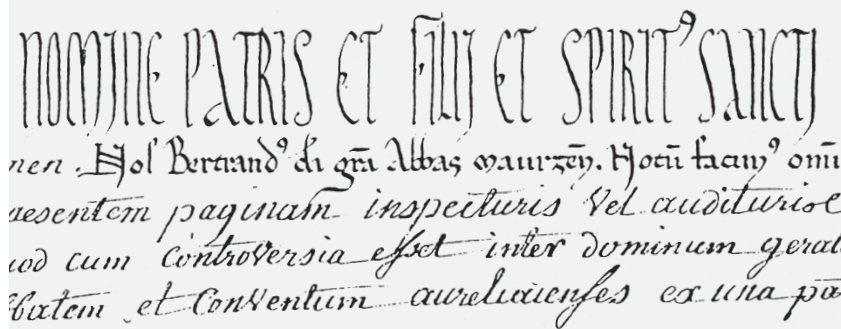 NOMINE PATRIS ET FILIJ ET SPIRITꝰ SANCTJ
men. Nos Bertrandꝰ di grā Abbas maurzēn. Notū facimꝰ omī
aesentem paginam inspecturis vel audituris
uod cum Controversia esset inter dominum geral
bbatem et Conventum aureliacenses ex una pa